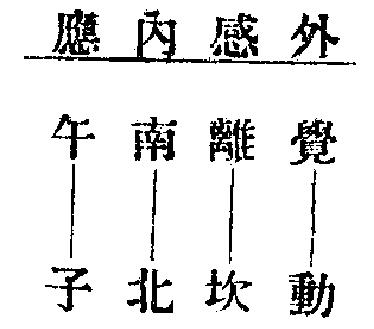 外感內應
覺 離 南 午
動 坎 北 子